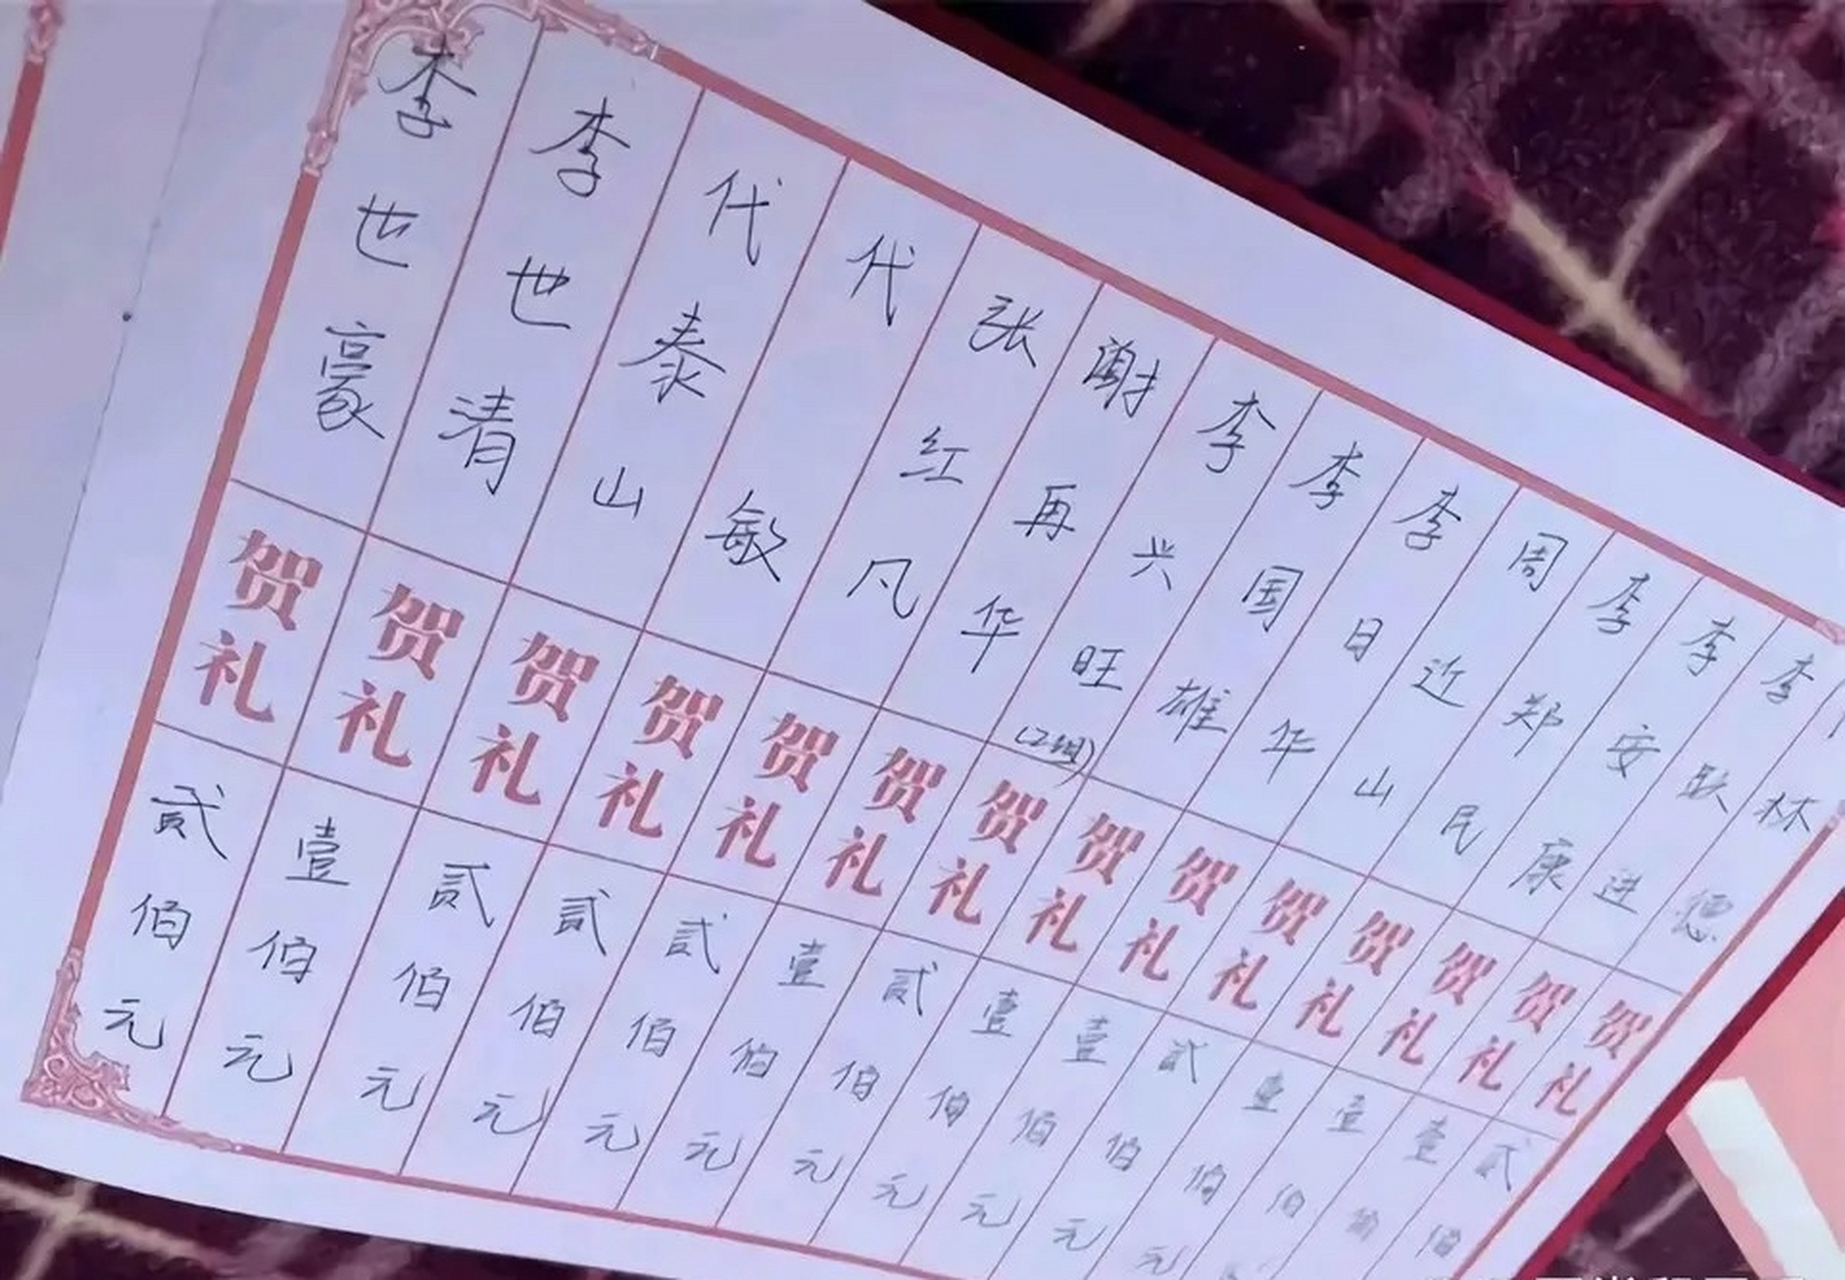 李世豪 贺礼 贰伯元
李世清 贺礼 壹伯元
代泰山 贺礼 贰伯元
代敏 贺礼 贰伯元
张红凡 贺礼 贰伯元
谢再华 贺礼 壹伯元
李兴旺(2组) 贺礼 贰伯元
李国雄 贺礼 壹伯元
李日华 贺礼 壹伯元
周近山 贺礼 贰伯元
李郑民 贺礼 壹伯元
李安康 贺礼 壹伯
李跃进 贺礼 壹伯
林德 贺礼 贰伯